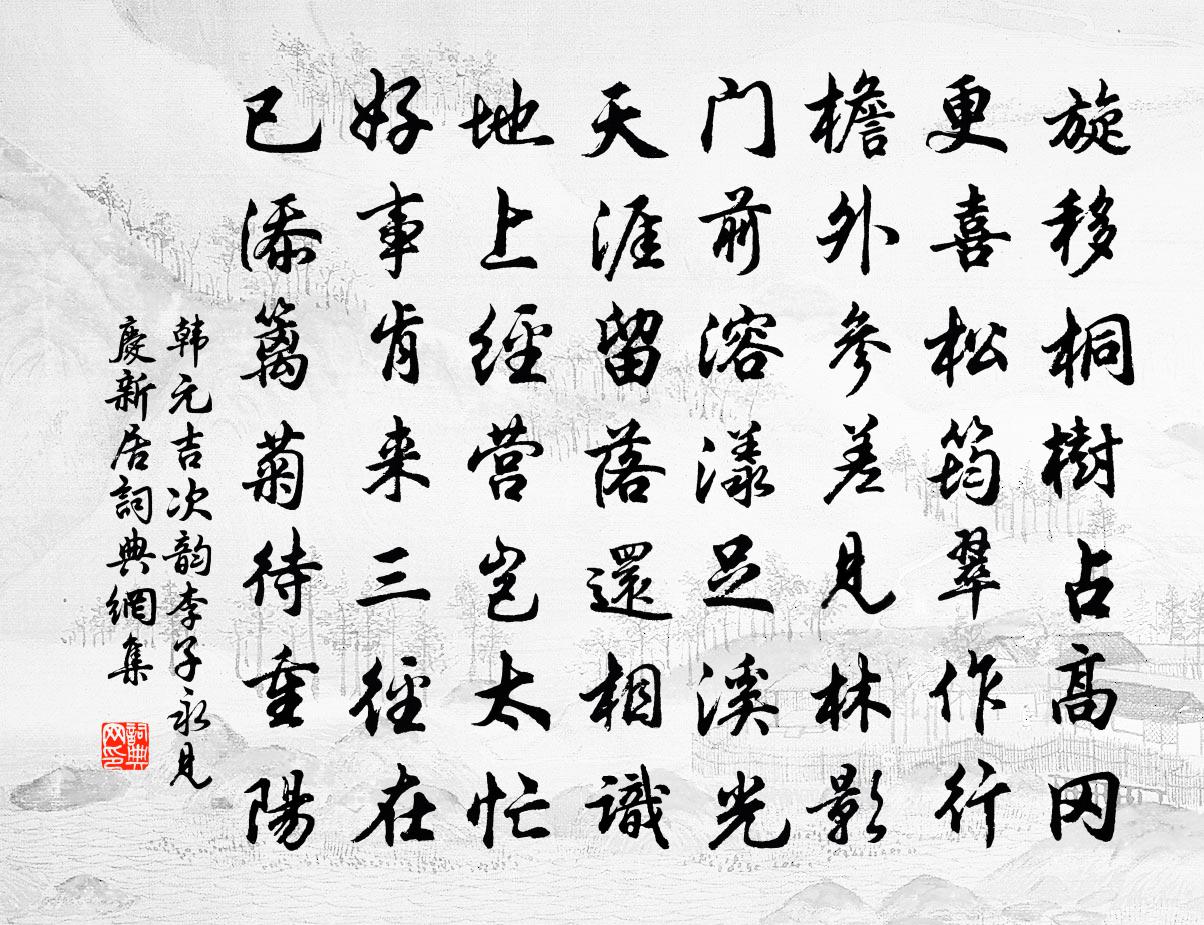 旋移桐樹占高冈
更喜松筠翠作行
檐外參差見林影
门前溶漾足溪光
天涯留落還相識
地上經营岂太忙
好事肯来三徑在
已添篱菊待重陽
韩元吉次韵李子永見
慶新居詞典網集
詞典网印